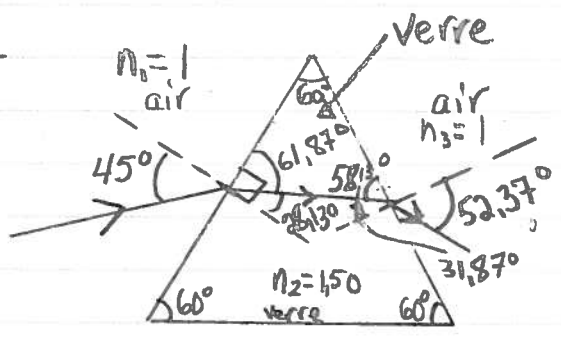 verre
n₁=1
air
60°
air
n₃=1
45°
61,87°
58,13°
28,13°
52,37°
31,87°
n₂=1,50
verre
60°
60°